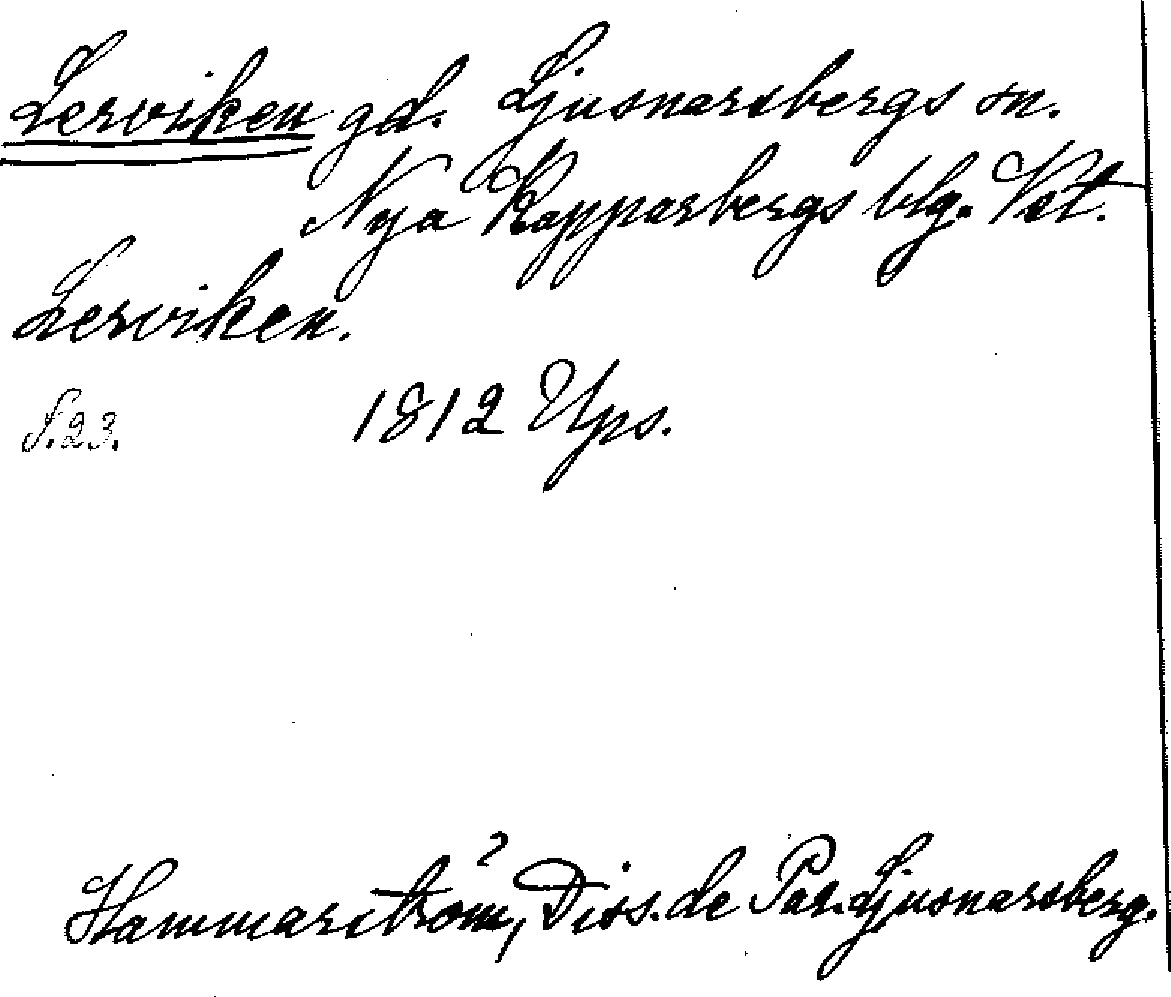 Lerviken gd. Ljusnarsbergs sn.
Nya Kopparbergs blg. Vst.
Lerviken.
S. 23. 1812 Ups.
Hammarström, Diss. de Par. Ljusnarsberg.